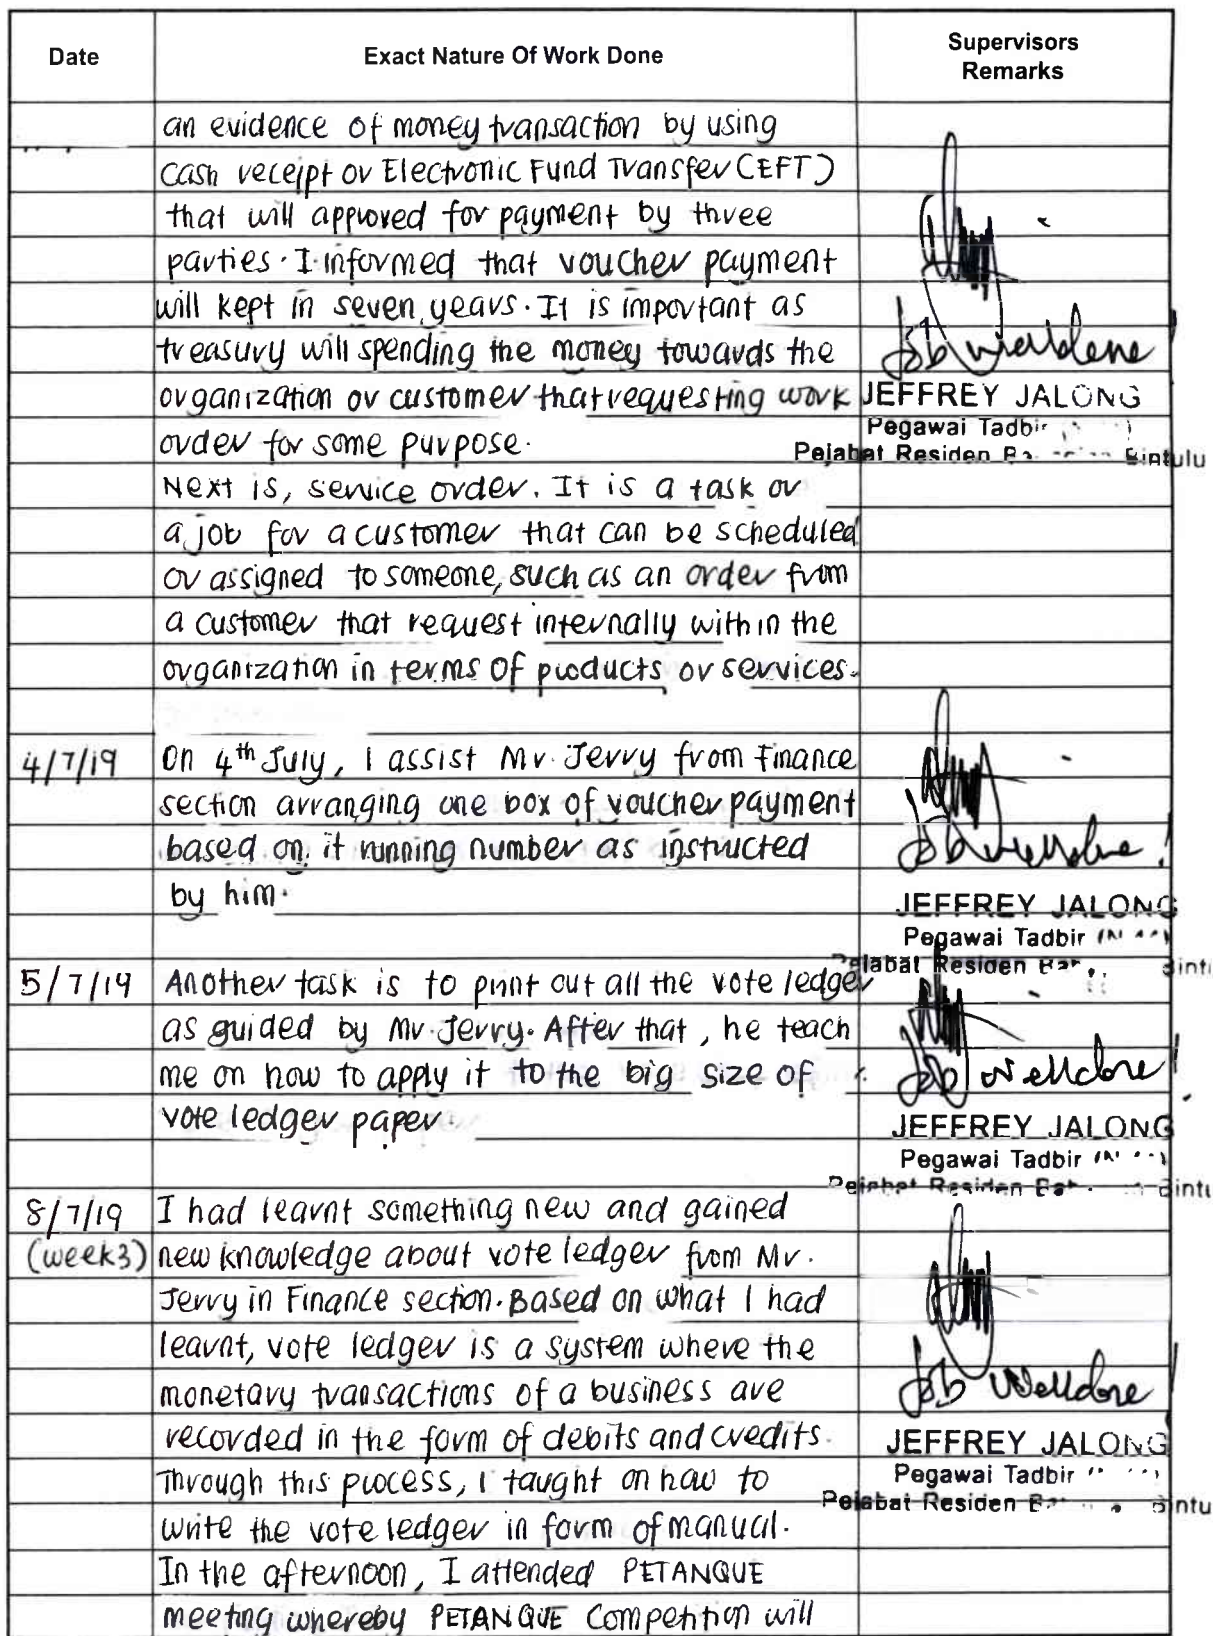 Date
Exact Nature Of Work Done
Supervisors
Remarks
an evidence of money transaction by using
cash receipt or Electronic Fund Transfer (EFT)
that will approved for payment by three
parties. I informed that voucher payment
will kept in seven years. It is important as
treasury will spending the money towards the
organization or customer that requesting work
order for some purpose.
Job welldone!
JEFFREY JALONG
Pegawai Tadbir
Pejabat Residen Bintulu
Next is, service order. It is a task or
a job for a customer that can be scheduled
or assigned to someone, such as an order from
a customer that request internally within the
organization in terms of products or services.
4/7/19
On 4th July, I assist Mr. Jerry from Finance
section arranging one box of voucher payment
based on it running number as instructed
by him.
Job welldone!
JEFFREY JALONG
Pegawai Tadbir
Pejabat Residen
5/7/19
Another task is to print out all the vote ledger
as guided by Mr. Jerry. After that, he teach
me on how to apply it to the big size of
vote ledger paper.
Job welldone!
JEFFREY JALONG
Pegawai Tadbir
Pejabat Residen
8/7/19
(week3)
I had learnt something new and gained
new knowledge about vote ledger from Mr.
Jerry in Finance section. Based on what I had
learnt, vote ledger is a system where the
monetary transactions of a business are
recorded in the form of debits and credits.
Through this process, I taught on how to
write the vote ledger in form of manual.
In the afternoon, I attended PETANQUE
meeting whereby PETANQUE Competition will
Job Welldone!
JEFFREY JALONG
Pegawai Tadbir
Pejabat Residen